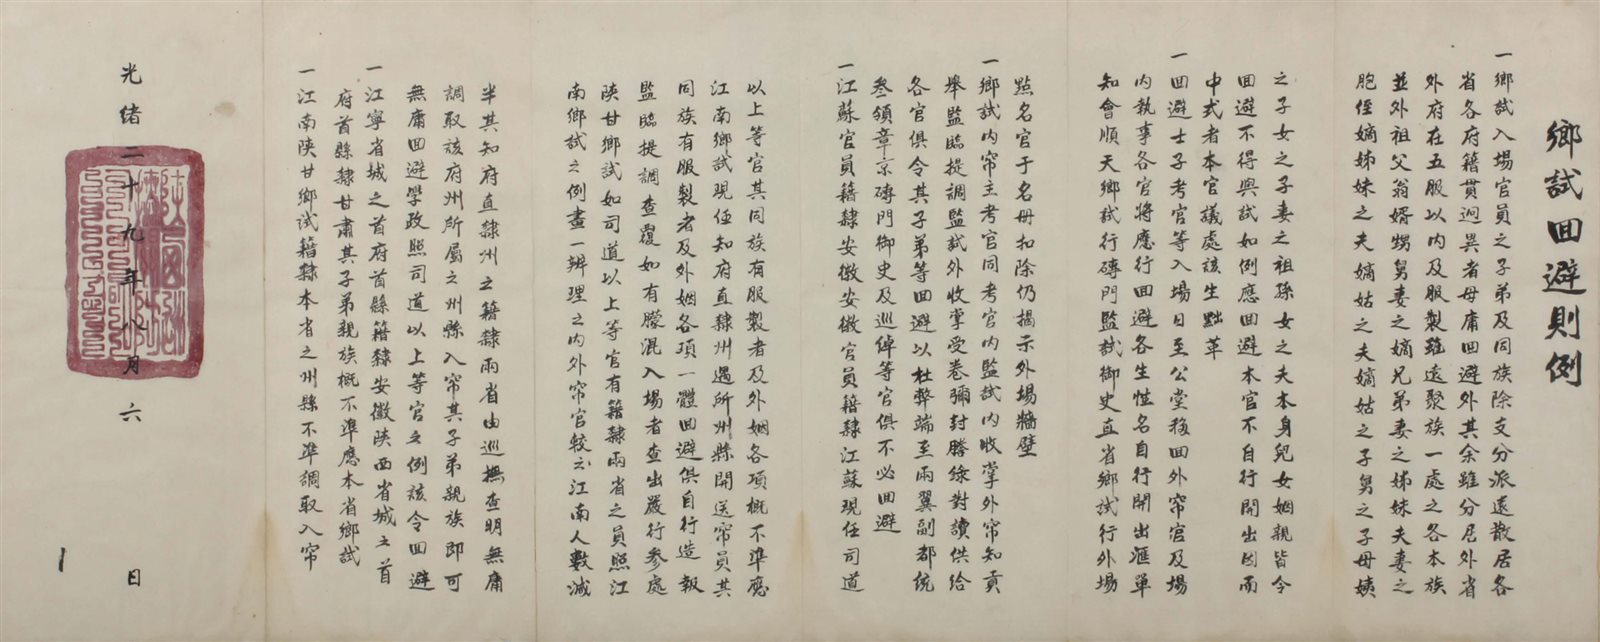 鄉試回避則例
一鄉試入場官員之子弟及同族除支分派遠散居各
省各府籍貫迥異者毋庸回避外其余雖分居外省
外府在五服以内及服製雖遠聚族一處之各本族
並外祖父翁婿甥舅妻之嫡兄弟妻之姊妹夫妻之
胞侄嫡姊妹之夫嫡姑之夫嫡姑之子舅之子母姨
之子女之子妻之祖孫女之夫本身兒女姻親皆令
回避不得與試如例應回避本官不自行開出因而
中式者本官議處該生黜革
一回避士子考官等入場日至公堂移回外帘官及場
内執事各官將應行回避各生姓名自行開出滙單
知會順天鄉試行磚門監試御史直省鄉試行外場
點名官于名冊扣除仍揭示外場牆壁
一鄉試内帘主考官同考官内監試内收掌外帘知貢
舉監臨提調監試外收掌受卷彌封謄綠對讀供給
各官俱令其子弟等回避以杜弊端至兩翼副都統
叁領章京磚門御史及巡綽等官俱不必回避
一江蘇官員籍隸安徽安徽官員籍隸江蘇現任司道
以上等官其同族有服製者及外姻各項概不準應
江南鄉試現任知府直隸州遇所州縣開送帘員其
同族有服製者及外姻各項一體回避俱自行造報
監臨提調查覆如有朦混入場者查出嚴行參處
陝甘鄉試如司道以上等官有籍隸兩省之員照江
南鄉試之例畫一辨理之内外帘官較云江南人數減
半其知府直隸州之籍隸兩省由巡撫查明無庸
調取該府州所屬之州縣入帘其子弟親族即可
無庸回避學政照司道以上等官之例該令回避
一江寧省城之首府首縣籍隸安徽陝西省城之首
府首縣隸甘肅其子弟親族概不準應本省鄉試
一江南陝甘鄉試籍隸本省之州縣不準調取入帘
光緒二十九年八月六日